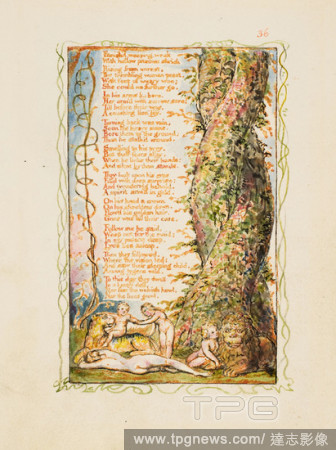 36
Famish'd, weeping, weak
With hollow piteous shriek
Rising from unrest,
The trembling woman prest,
With feet of weary woe;
She could no further go.
In his arms he bore,
Her arm'd with sorrow sore;
Till before their way,
A couching lion lay.
Turning back was vain,
Soon his heavy mane,
Bore them to the ground;
Then he stalk'd around,
Smelling to his prey,
But their fears allay,
When he licks their hands;
And silent by them stands.
They look upon his eyes
Fill'd with deep surprise;
And wondering behold,
A spirit arm'd in gold.
On his head a crown
On his shoulders down,
Flow'd his golden hair.
Gone was all their care.
Follow me he said,
Weep not for the maid;
In my palace deep,
Lyca lies asleep.
Then they followed,
Where the vision led:
And saw their sleeping child,
Among tygers wild.
To this day they dwell
In a lonely dell
Nor fear the wolvish howl,
Nor the lions growl.
TPG
www.tpgnews.com/ 達志影像